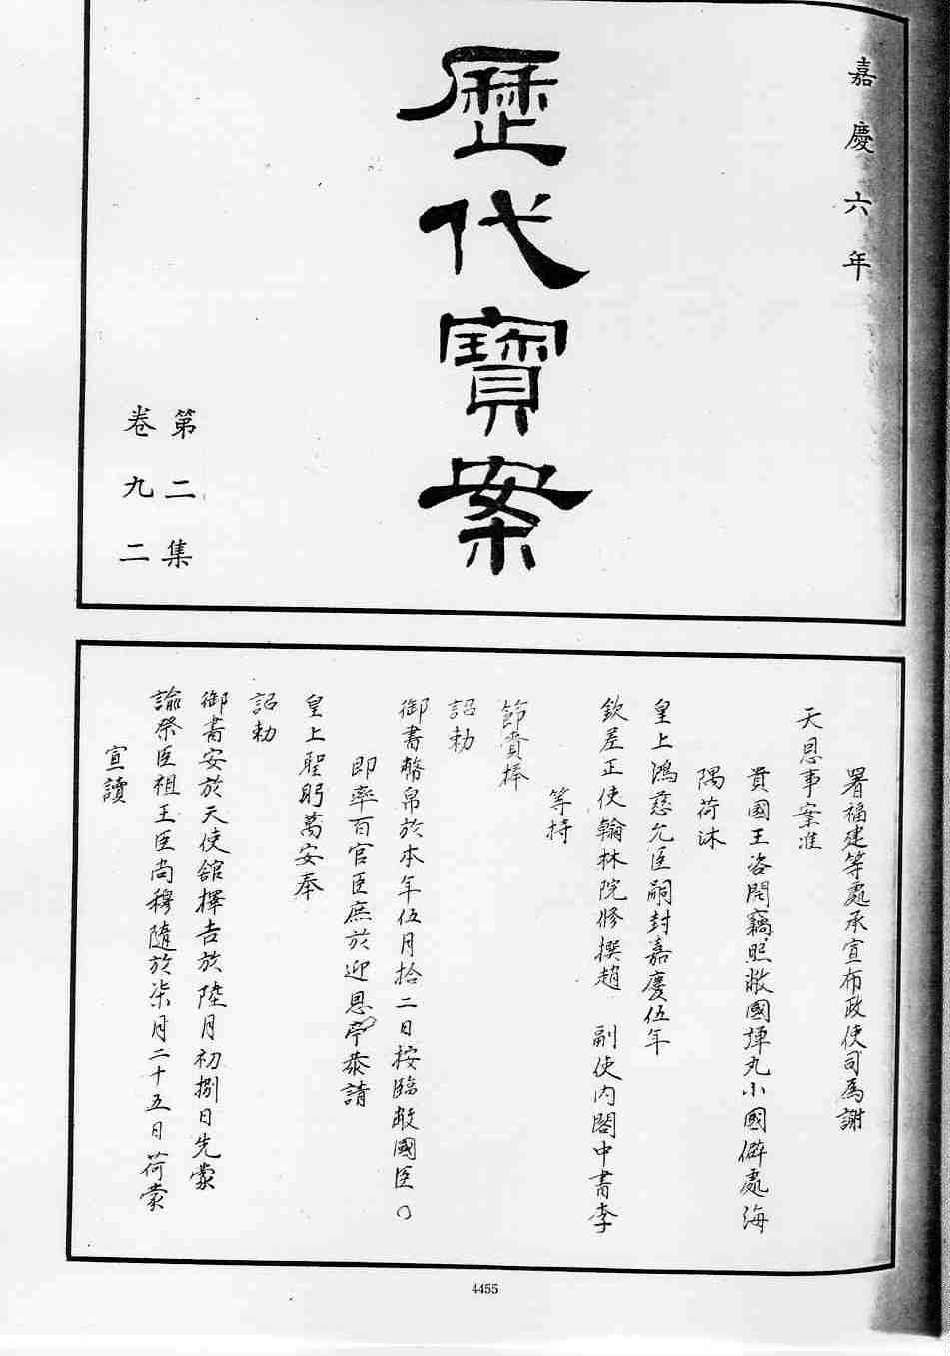 嘉慶六年
歷代寶案
第二集
卷九二
署福建等處承宣布政使司爲謝
天恩事案准
貴國王咨開竊照敝國墠丸小國僻處海
隅荷沐
皇上鴻慈允臣嗣封嘉慶伍年
欽差正使翰林院修撰趙 副使內閣中書李
等持
節賫捧
詔勅
御書幣帛於本年伍月拾二日按臨敝國臣〇
即率百官臣庶於迎恩亭恭請
皇上聖躬萬安奉
詔勅
御書安於天使舘擇吉於陸月初捌日先蒙
諭祭臣祖王臣尚穆隨於柒月二十五日荷蒙
宣讀
4455